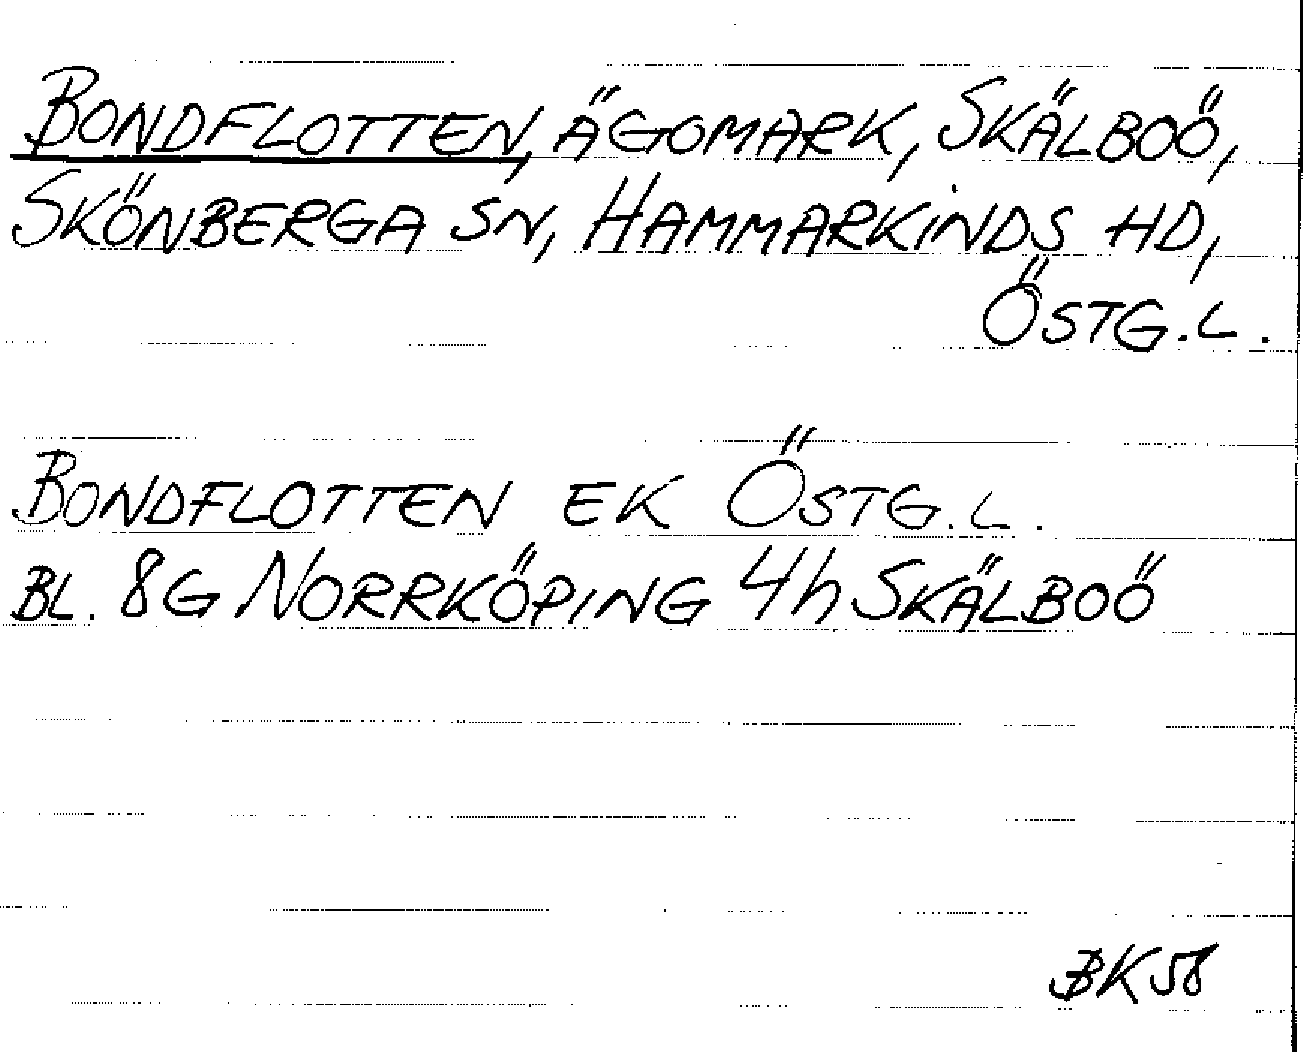 BONDFLOTTEN, ÄGOMARK, SKÄLBOÖ,
SKÖNBERGA SN, HAMMARKINDS HD,
ÖSTG.L.
BONDFLOTTEN EK ÖSTG.L.
BL. 8G NORRKÖPING 4h SKÄLBOÖ
BK58